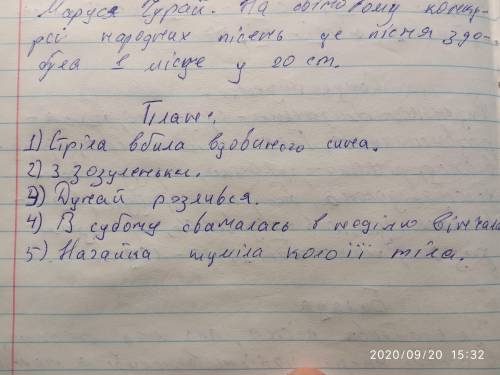 Маруся Чурай. На світовому конку-
рсі народних пісень це пісня здо-
була 1 місце у 20 ст.
План:
1) Стріла вбила вдовиного сина.
2) 3 зозуленьки.
3) Дунай розлився.
4) В суботу сваталась в неділю вінчала
5) Нагайка шуміла коло її тіла.
2020/09/20 15:32